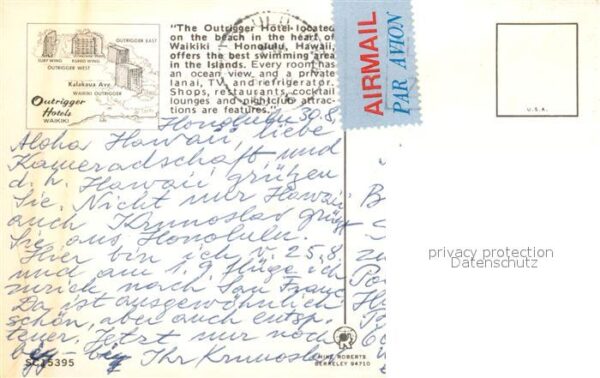 OUTRIGGER EAST
SURF WING
OUTRIGGER WEST
Kalakaua Ave.
WAIKIKI OUTRIGGER
Outrigger
Hotels
WAIKIKI
"The Outrigger Hotel located
on the beach in the heart of
Waikiki - Honolulu, Hawaii,
offers the best swimming area
in the Islands. Every room has
an ocean view, and a private
lanai, TV, and refrigerator.
Shops, restaurants, cocktail
lounges and nightclub attrac-
tions are features."
AIRMAIL
PAR AVION
U.S.A.
Honolulu 30.8.
Aloha Hawaii, liebe
Kameradschaft und
d. h. Hawaii grüßen
Sie. Nicht nur Hawaii
auch Krunoslav grüßt
Sie aus Honolulu.
Hier bin ich v. 25.8.
und am 1.9. flüge ich
zurück nach San Franc.
Da ist ausgewöhnlich
schön, aber auch entsp.
teuer. Jetzt nur noch
by-by Ihr Krunoslav
privacy protection
Datenschutz
SC15395
MIKE ROBERTS
BERKELEY 94710